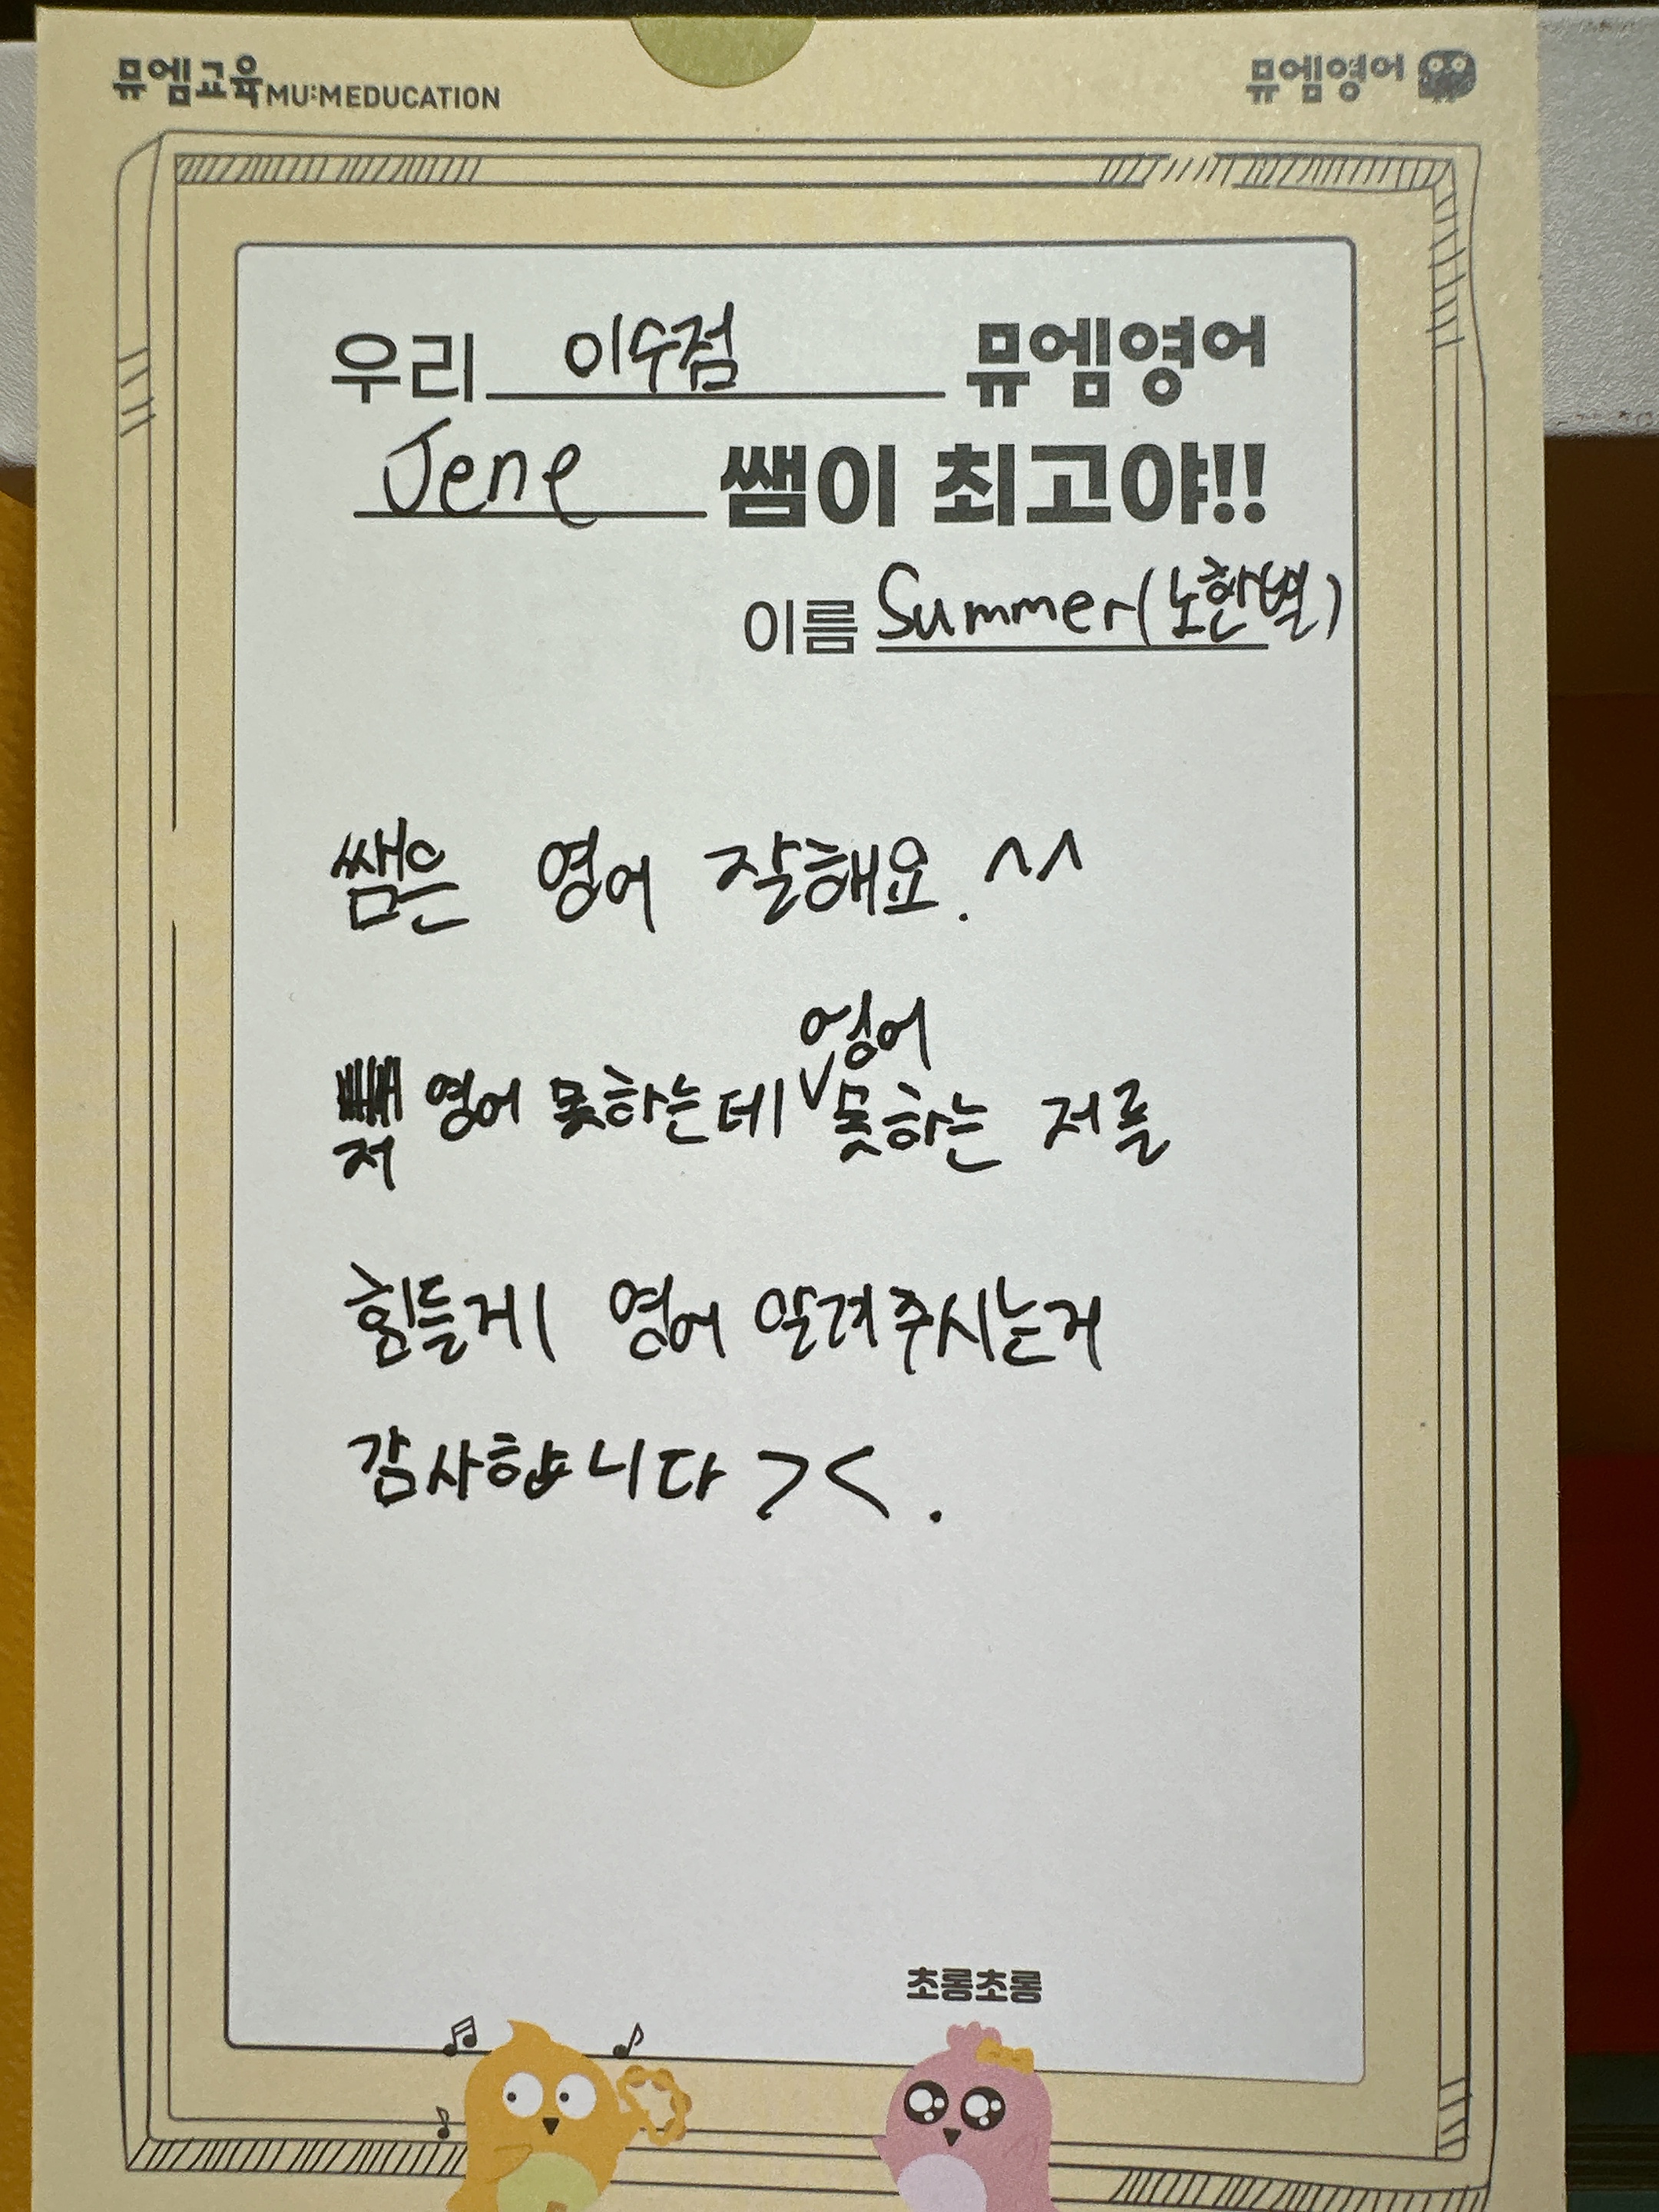 뮤엠교육 MU:M EDUCATION
뮤엠영어
우리 이수점 뮤엠영어
Jene 쌤이 최고야!!
이름 Summer(노한별)
쌤은 영어 잘해요. ^^
저 영어 못하는데 영어 못하는 저를
힘들게 영어 알려주시는거
감사합니다 ><.
초롱초롱